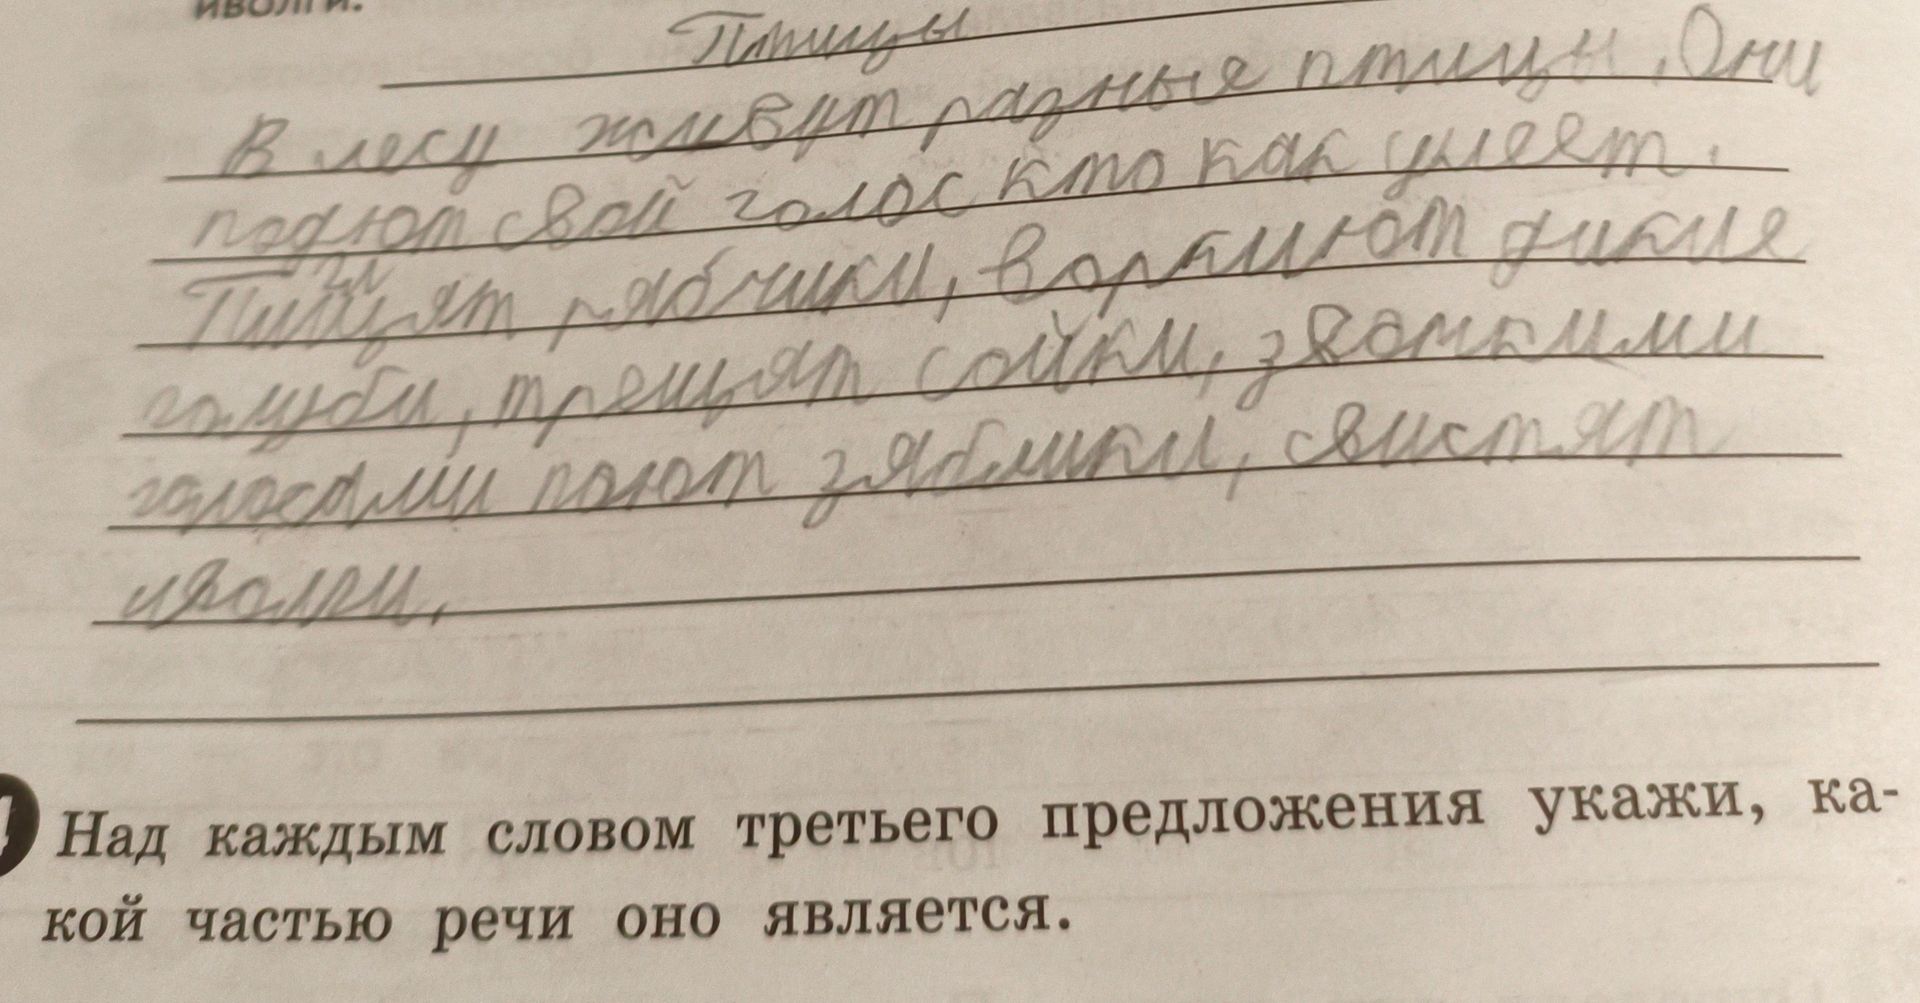 иволги.
Птицы
В лесу живут разные птицы. Они
подают свой голос кто как умеет.
Пищят рябчики, воркуют дикие
голуби, трещят сойки, звонкими
голосами поют зяблики, свистят
иволги.
Над каждым словом третьего предложения укажи, ка-
кой частью речи оно является.